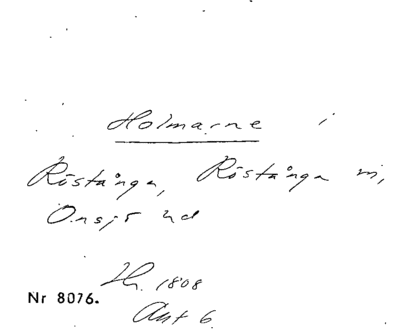 Holmarne i
Röstånga, Röstånga sn,
Onsjö hd
Hr. 1808
Nr 8076.
Akt 6